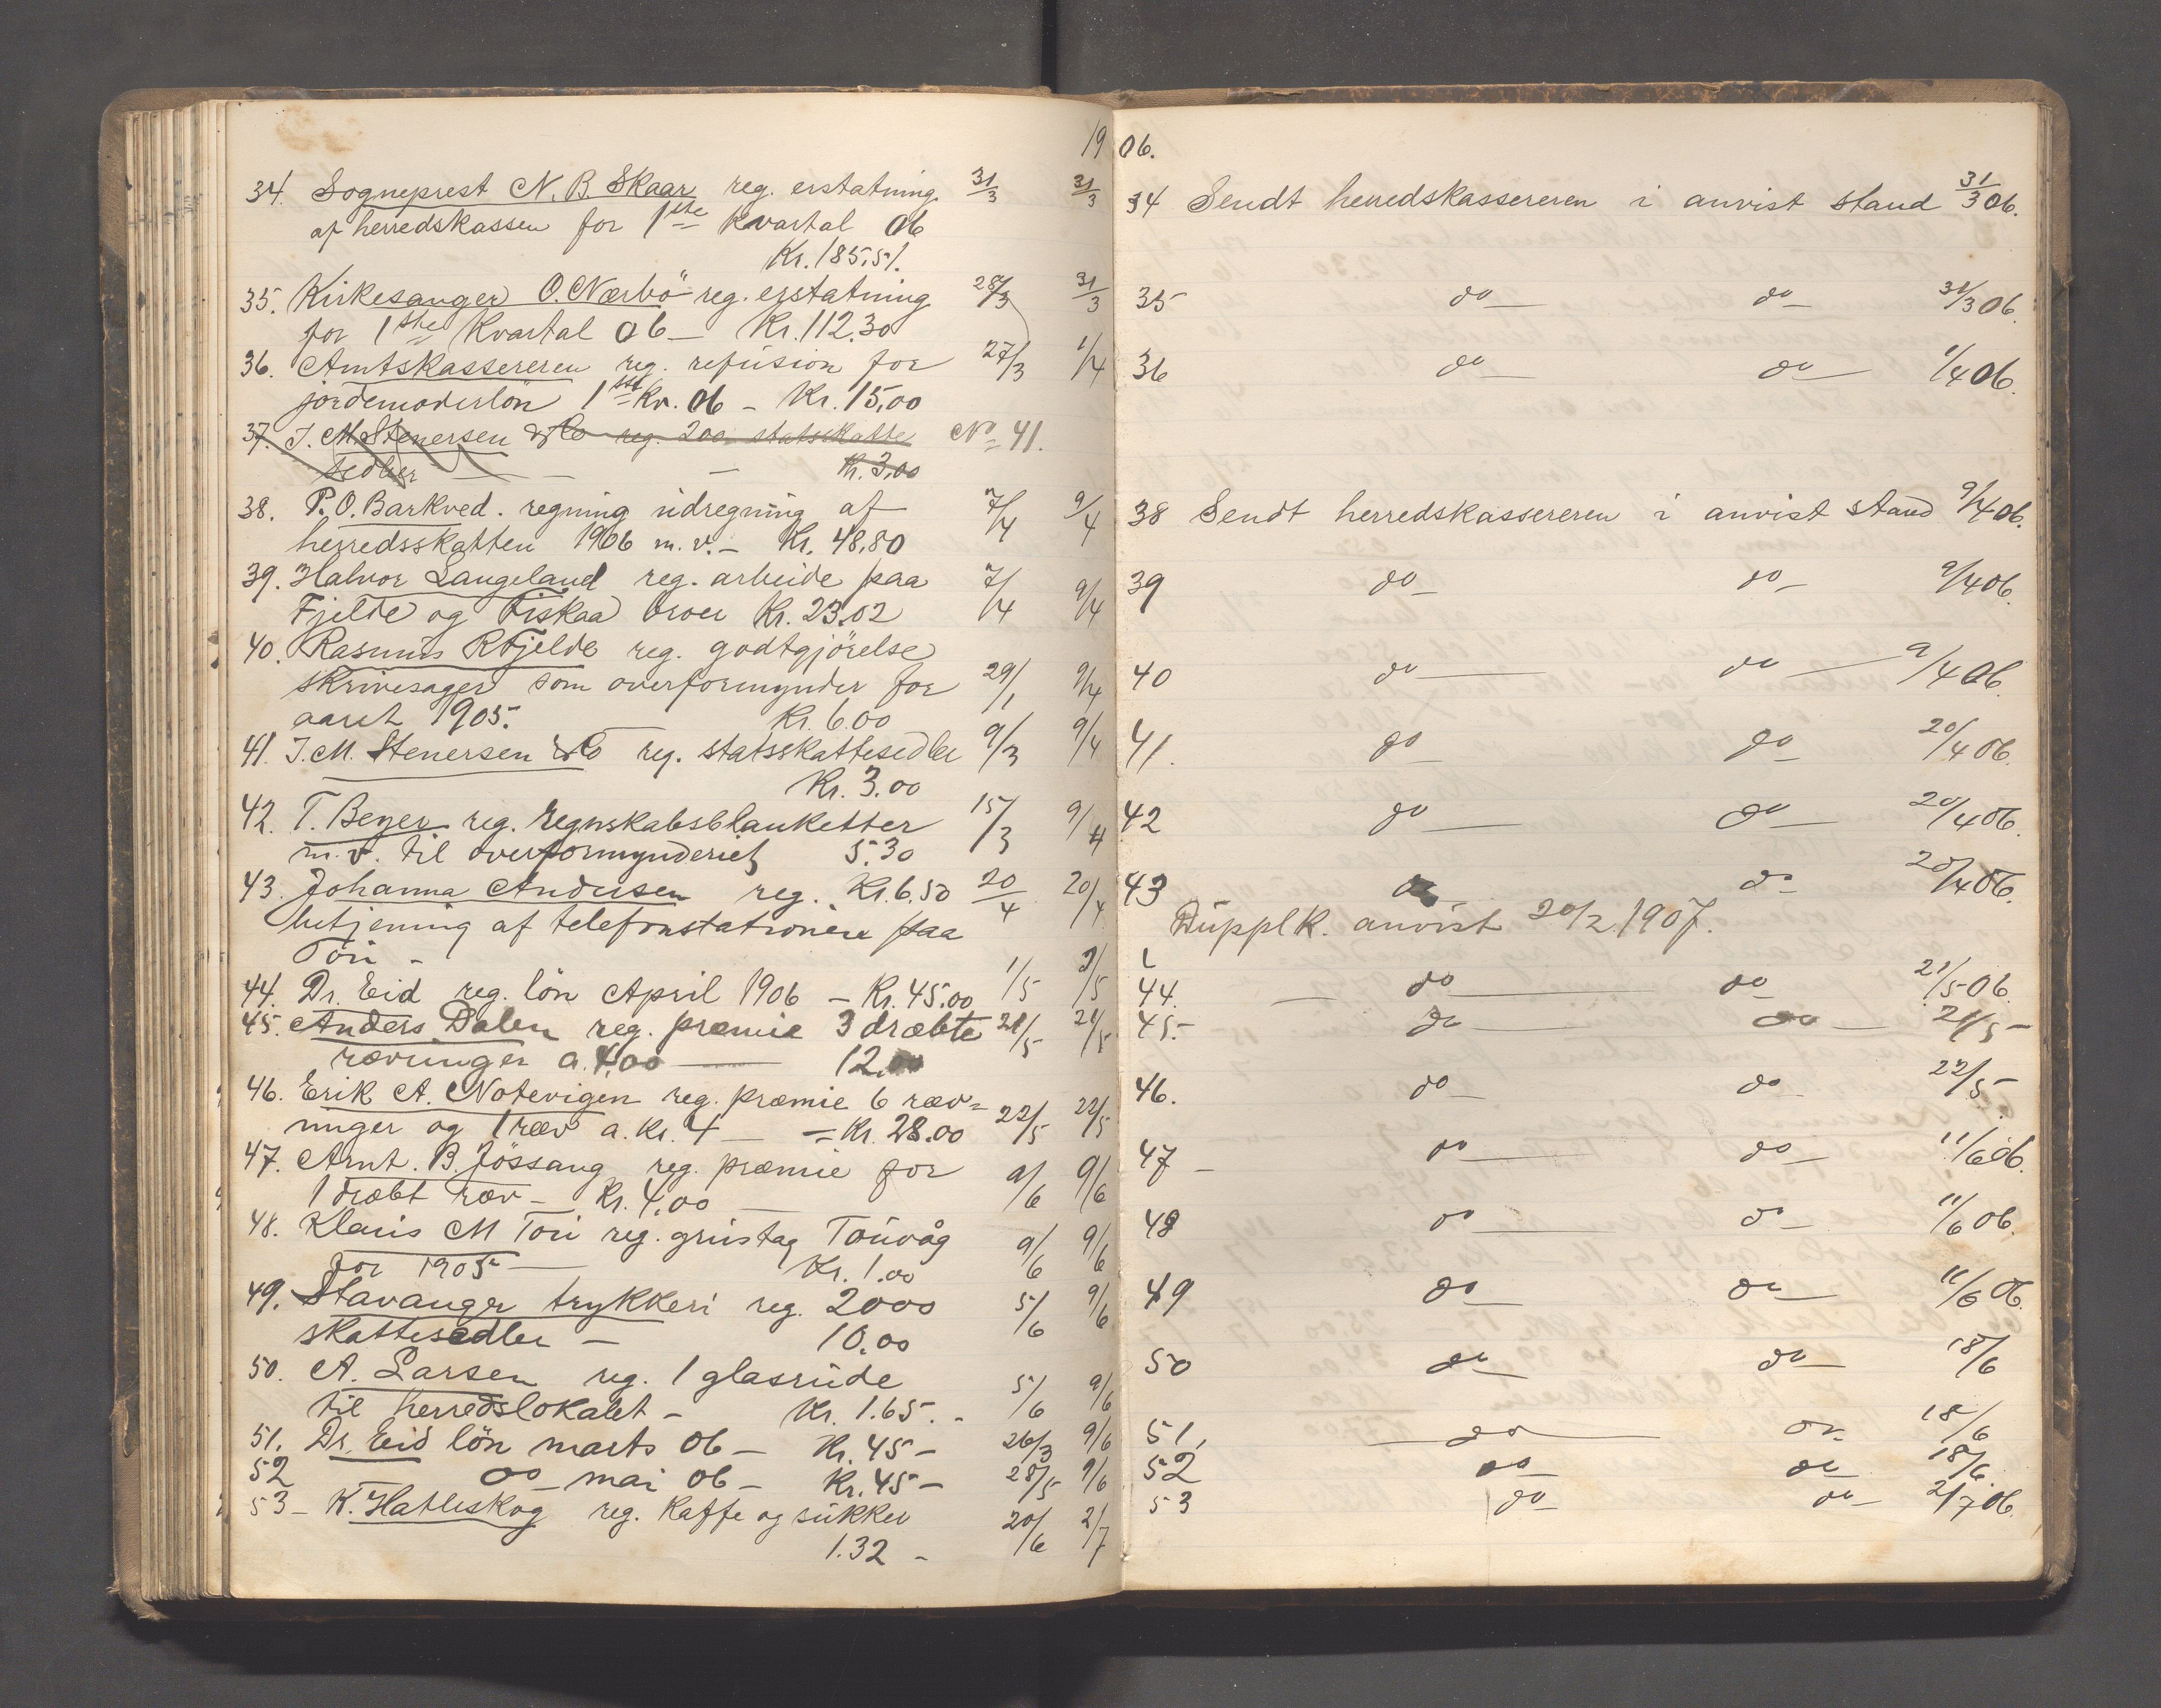 1906.
34. Sogneprest N. B. Skaar reg. erstatning 31/3 31/3
af herredskassen for 1ste Kvartal 06
Kr. 185,51.
35. Kirkesanger O. Nærbö reg. erstatning 28/3 31/3
for 1ste Kvartal 06 – Kr. 112.30
36. Amtskassereren reg. refusion for 27/3 1/4
jordemoderlön 1ste Kv. 06 – Kr. 15,00
37. J. M. Stenersen & Co reg. 200 statsskatte No 41.
sedler – – – Kr. 3,00
38. P. O. Barkved. regning udregning af 7/4 9/4
herredsskatten 1906 m. v. – Kr. 48,80
39. Halvor Langeland reg. arbeide paa 7/4 9/4
Fjelde og Fiskaa broer Kr. 23.02
40. Rasmus R Fjelde reg. godtgjörelse
skrivesager som overformynder for 29/1 9/4
aaret 1905. Kr. 6.00
41. J. M. Stenersen & Co reg. statsskattesedler 9/3 9/4
Kr. 3.00
42. T. Beyer reg. regnskabsblanketter 15/3 9/4
m. v. til overformynderiet 5.30
43. Johanna Andersen reg. Kr. 6,50 20/4 20/4
betjening af telefonstationen paa
Tou –
44. Dr. Eid reg. lön April 1906 – Kr. 45.00 1/5 2/5
45. Anders Dalen reg. præmie 3 dræbte 21/5 21/5
rævunger a. 4,00 – 12.00
46. Erik A. Notevigen reg. præmie 6 ræv= 22/5 22/5
unger og 1 ræv a. Kr. 4 – = Kr. 28.00
47. Arnt. B. Jössang reg. præmie for 9/6 9/6
1 dræbt ræv – Kr. 4,00 –
48. Klaus M Tou reg. grustag Touvåg 9/6 9/6
for 1905 – Kr. 1.00
49. Stavanger trykkeri reg. 2000 5/6 9/6
skattesedler – 10.00
50. A. Larsen reg. 1 glasrude
til herredslokalet – Kr. 1.65. – 5/6 9/6
51. Dr. Eid lön marts 06 – Kr. 45 – 26/3 9/6
52 do – mai 06 – Kr. 45 – 28/5 9/6
53 – K. Hatleskog reg. Kaffe og sukker 20/6 2/7
1.32 –
34 Sendt herredskassereren i anvist stand 31/3 06.
35 do – do – 31/3 06.
36 do – do – 1/4 06.
38 Sendt herredskassereren i anvist stand 9/4 06.
39 do – do – 9/4 06.
40 do – do – 9/4 06.
41. do – do – 20/4 06.
42 do – do – 20/4 06.
43 do do – 20/4 06.
Dupplk. anvist 20/2 1907.
44. – do – do – 21/5 06.
45. – do – do – 21/5 –
46. do – do – 22/5 –
47 – do – do – 11/6 06.
48 do – do – 11/6 06.
49 do – do – 11/6 06.
50 do – do – 18/6
51, – do – do – 18/6
52 do – do – 18/6.
53 do – do – 2/7 06.